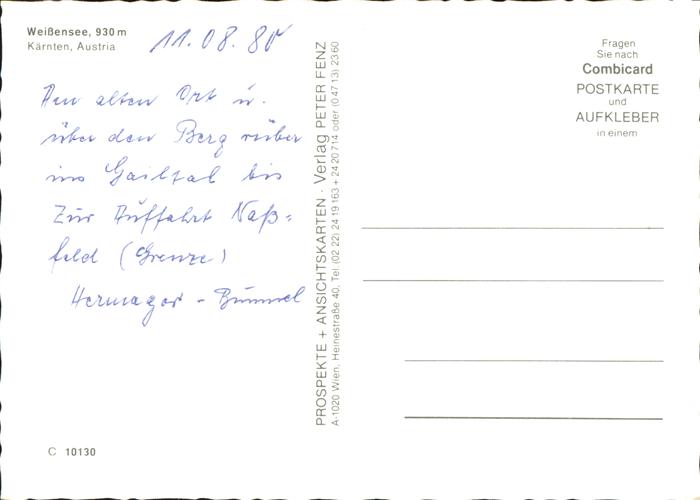 Weißensee, 930 m
Kärnten, Austria
11.08.80
Am alten Ort u.
über den Berg rüber
ins Gailtal bis
zur Auffahrt Naß-
feld (Grenze)
Hermagor - Bummel
PROSPEKTE + ANSICHTSKARTEN · Verlag PETER FENZ
A-1020 Wien, Heinestraße 40, Tel. (02 22) 24 19 163 + 24 20 714 oder (0 47 13) 23 60
Fragen
Sie nach
Combicard
POSTKARTE
und
AUFKLEBER
in einem
C 10130